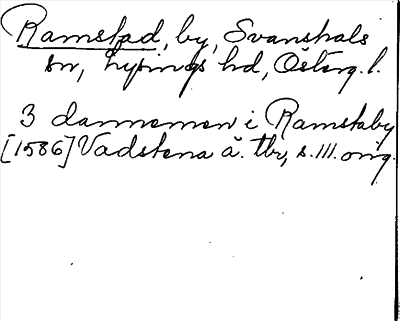 Ramstad, by, Svanshals
sn, Lysings hd, Österg. l.
3 dannemen i Ramstaby
[1586] Vadstena ä. tbr, s. 111. orig.